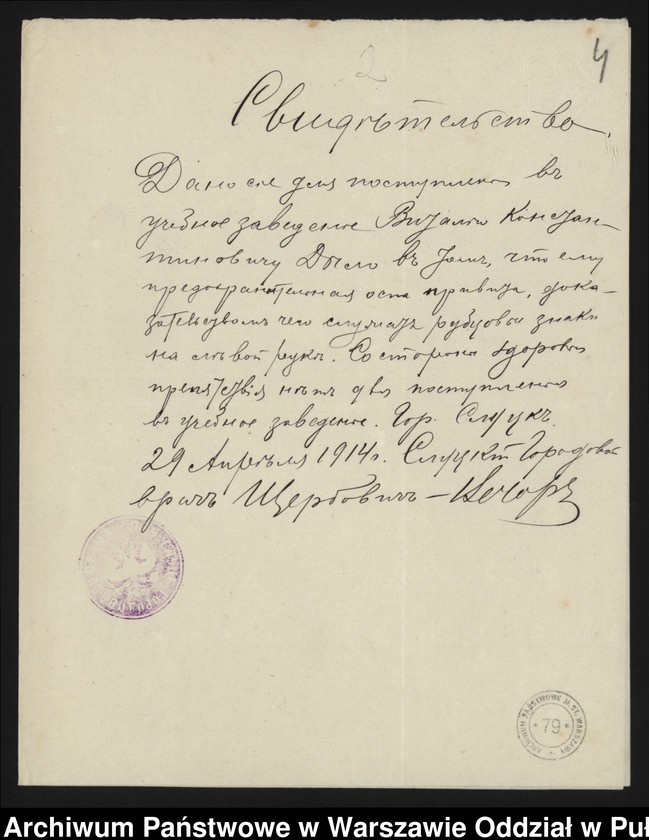 2
4
Свидѣтельство.
Дано сіе для поступленія въ
учебное заведеніе Виталію Констан-
тиновичу Дыло въ томъ, что ему
предохранительная оспа привита, дока-
зательствомъ чего служатъ рубцовые знаки
на лѣвой рукѣ. Со стороны здоровья
препятствія нѣтъ для поступленія
въ учебное заведеніе. Гор. Слуцкъ.
29 Апрѣля 1914 г. Слуцкій Городовой
врачъ Щербовичъ-Вечоръ
ARCHIWUM PAŃSTWOWE M. ST. WARSZAWY
* 79 *
Archiwum Państwowe w Warszawie Oddział w Puł